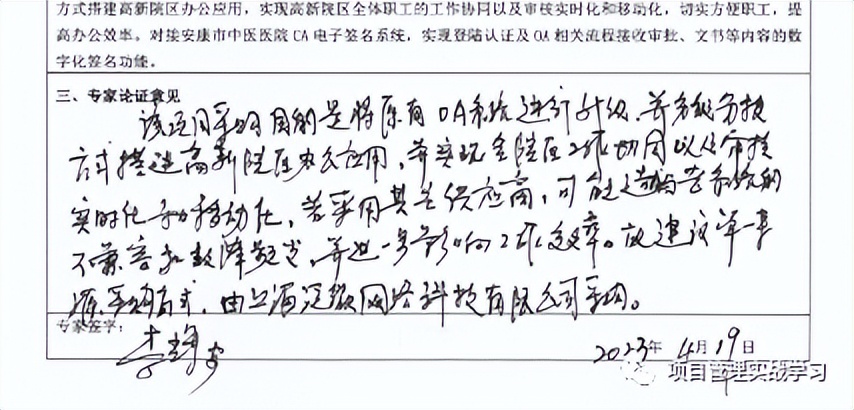 方式搭建高新院区办公应用，实现高新院区全体职工的工作协同以及审核实时化和移动化，切实方便职工，提
高办公效率。对接安康市中医医院 CA 电子签名系统，实现登陆认证及 OA 相关流程接收审批、文书等内容的数
字化签名功能。
三、专家论证意见
该项目采购目的是将原有OA系统进行升级，并多级分接
方式搭建高新院区办公应用，并实现全院区工作协同以及审核
实时化和移动化，若采用其它供应商，可能造成与若系统的
不兼容和故障频发，并进一步影响工作效率。故建议单一来
源采购方式，由上海泛微网络科技有限公司采购。
专家签字：
2023年 4月 19日
项目管理实战学习